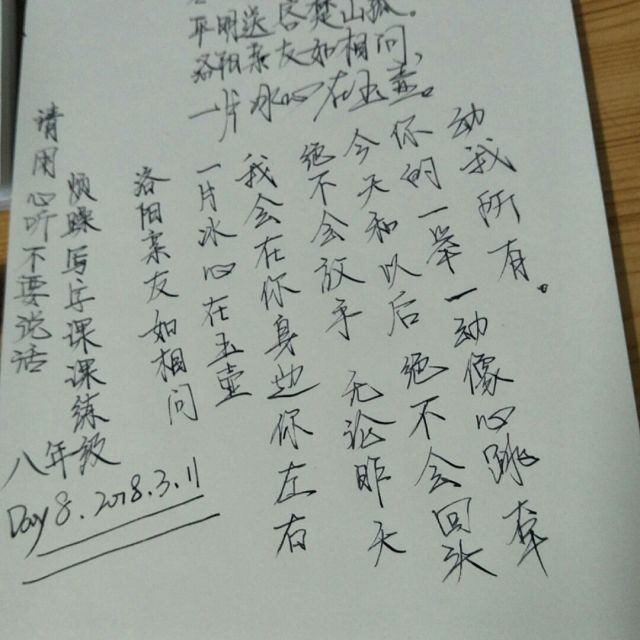 平明送客楚山孤。
洛阳亲友如相问，
一片冰心在玉壶。
请用心听不要说话
烦躁写字课课练
洛阳亲友如相问
一片冰心在玉壶
我会在你身边你左右
绝不会放手 无论昨天
今天和以后 绝不会回头
你的一举一动像心跳牵
动我所有。
八年级
Day 8. 2018.3.11